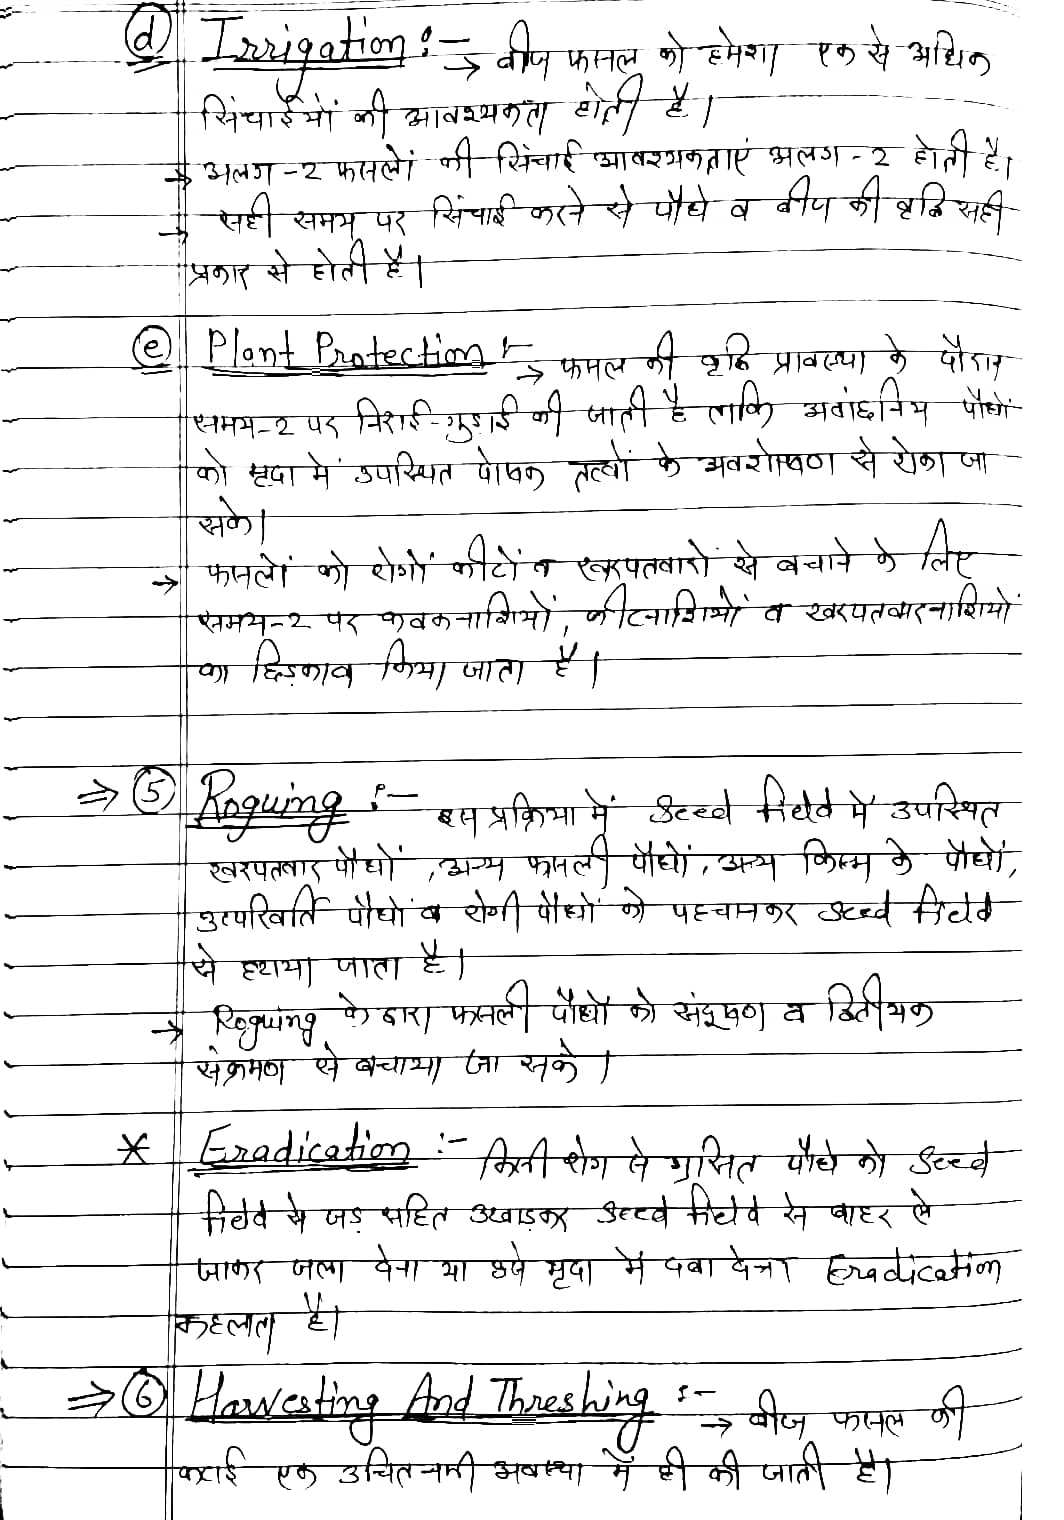 (d) Irrigation :- → बीज फसल को हमेशा एक से अधिक
सिंचाईयों की आवश्यकता होती है।
→ अलग-2 फसलों की सिंचाई आवश्यकताएं अलग-2 होती है।
→ सही समय पर सिंचाई करने से पौधे व बीज की वृद्धि सही
प्रकार से होती है।
(e) Plant Protection :- → फसल की वृद्धि प्रावस्था के दौरान
समय-2 पर निराई-गुड़ाई की जाती है ताकि अवांछनिय पौधों
को मृदा में उपस्थित पोषक तत्वों के अवशोषण से रोका जा
सके।
→ फसलों को रोगों कीटों व खरपतवारों से बचाने के लिए
समय-2 पर कवकनाशियों, कीटनाशियों व खरपतवारनाशियों
का छिड़काव किया जाता है।
⇒ (5) Roguing :- इस प्रक्रिया में Seed field में उपस्थित
खरपतवार पौधों, अन्य फसली पौधों, अन्य किस्म के पौधों,
उत्परिवर्ति पौधों व रोगी पौधों को पहचानकर Seed field
से हटाया जाता है।
→ Roguing के द्वारा फसली पौधों को संदूषण व द्वितीयक
संक्रमण से बचाया जा सके।
* Eradication :- किसी रोग से ग्रसित पौधे को Seed
field से जड़ सहित उखाड़कर Seed field से बाहर ले
जाकर जला देना या उसे मृदा में दबा देना Eradication
कहलाता है।
⇒ (6) Harvesting And Threshing :- → बीज फसल की
कटाई एक उचित नमी अवस्था में ही की जाती है।